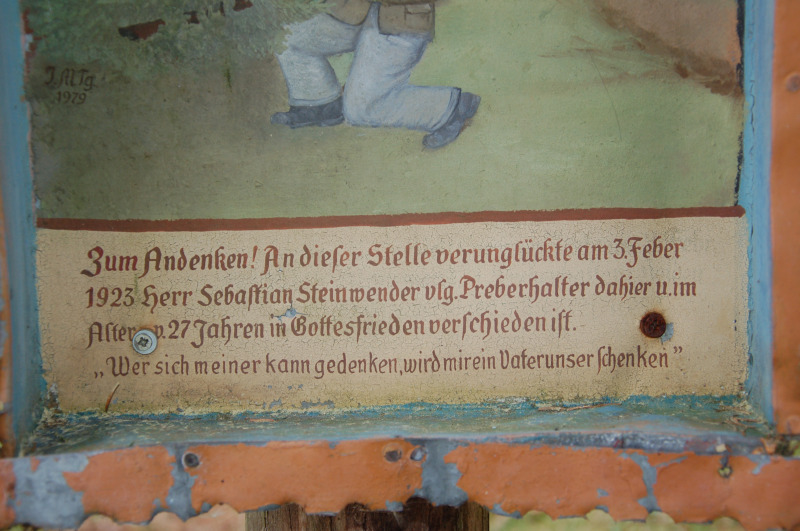 J. M Tg.
1979
Zum Andenken! An dieser Stelle verunglückte am 3. Feber
1923 Herr Sebastian Steinwender vlg. Preberhalter dahier u. im
Alter v. 27 Jahren in Gottesfrieden verschieden ist.
„Wer sich meiner kann gedenken, wird mir ein Vaterunser schenken”